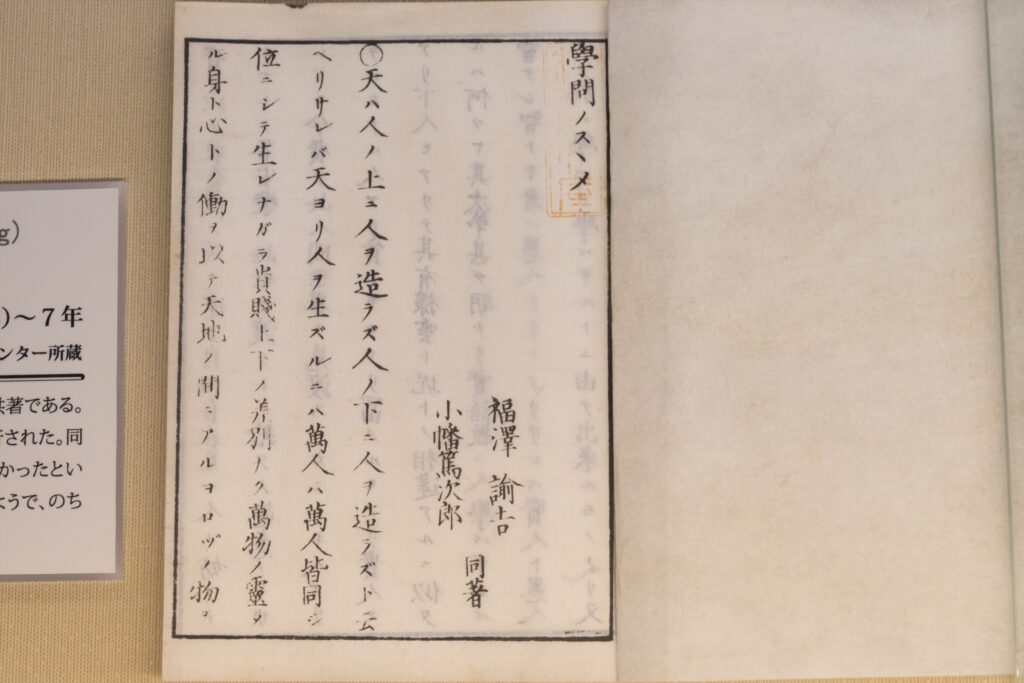 學問ノスヽメ
福澤諭吉
小幡篤次郎
同著
〇天ハ人ノ上ニ人ヲ造ラズ人ノ下ニ人ヲ造ラズト云
ヘリサレバ天ヨリ人ヲ生ズルニハ萬人ハ萬人皆同ジ
位ニシテ生レナガラ貴賤上下ノ差別ナク萬物ノ靈タ
ル身ト心トノ働ヲ以テ天地ノ間ニアルヨロヅノ物ヲ
g）
)～7年
ンター所蔵
共著である。
行された。同
かったとい
ようで、のち